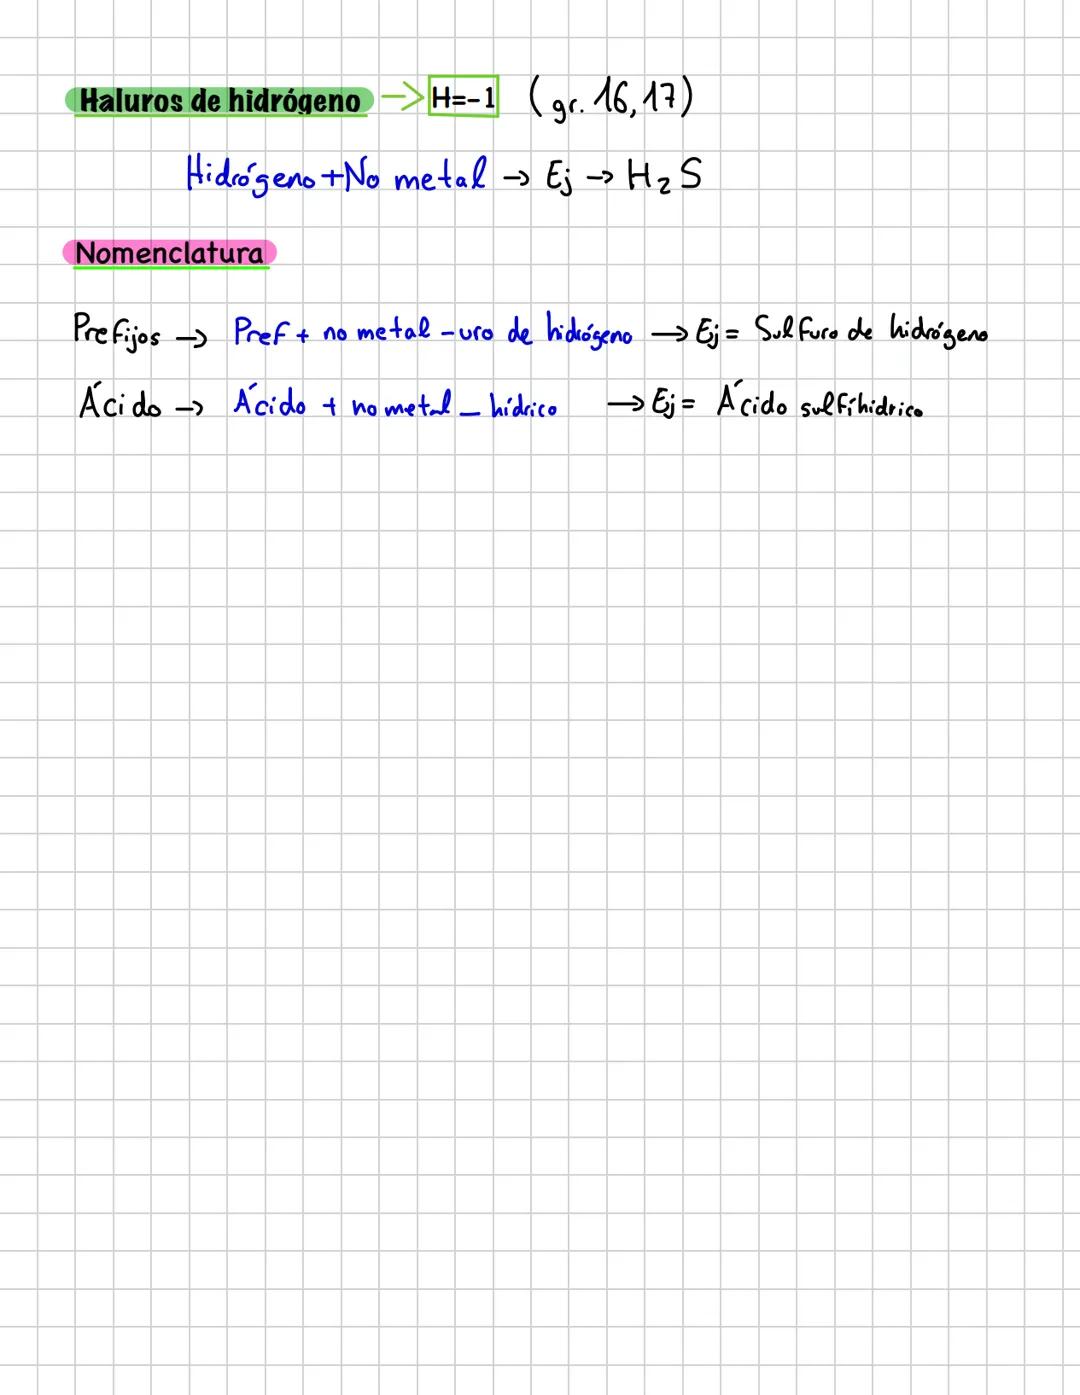 Haluros de hidrógeno → H=-1 (gr. 16,17)
Hidrógeno+No metal → Ej → H₂S
Nomenclatura
Prefijos → Pref + no metal -uro de hidrógeno → Ej = Sulfuro de hidrógeno
Ácido → Ácido + no metal - hídrico → Ej = Ácido sulfíhidrico